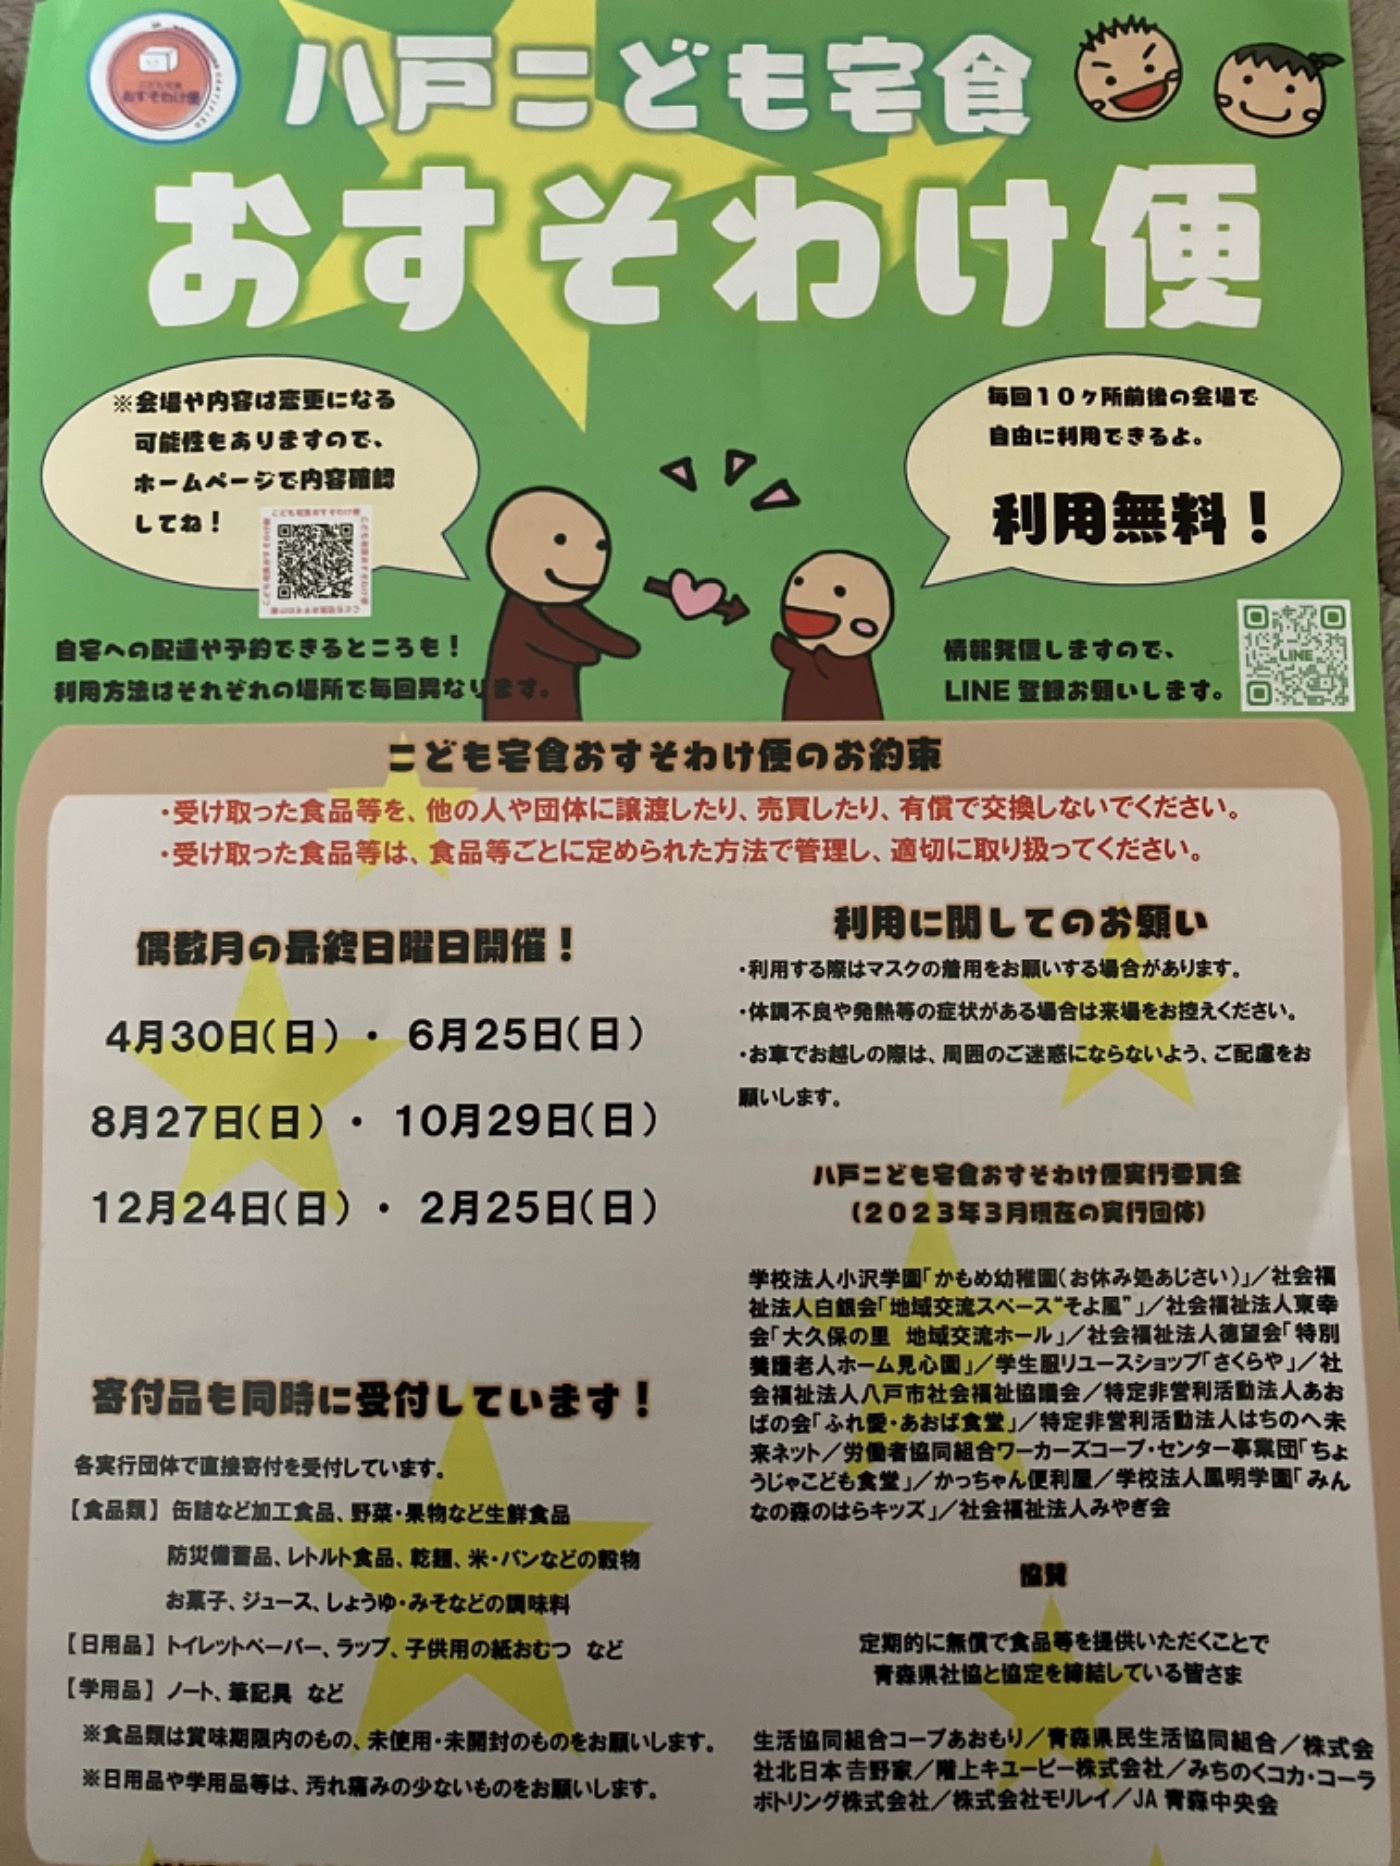 こども宅食
おすそわけ便
八戸こども宅食
おすそわけ便
※会場や内容は変更になる
可能性もありますので、
ホームページで内容確認
してね！
毎回１０ヶ所前後の会場で
自由に利用できるよ。
利用無料！
こども宅食おすそわけ便
自宅への配達や予約できるところも！
利用方法はそれぞれの場所で毎回異なります。
情報発信しますので、
LINE 登録お願いします。
LINE
こども宅食おすそわけ便のお約束
・受け取った食品等を、他の人や団体に譲渡したり、売買したり、有償で交換しないでください。
・受け取った食品等は、食品等ごとに定められた方法で管理し、適切に取り扱ってください。
偶数月の最終日曜日開催！
4月30日（日）・ 6月25日（日）
8月27日（日）・ 10月29日（日）
12月24日（日）・ 2月25日（日）
寄付品も同時に受付しています！
各実行団体で直接寄付を受付しています。
【食品類】 缶詰など加工食品、野菜・果物など生鮮食品
防災備蓄品、レトルト食品、乾麺、米・パンなどの穀物
お菓子、ジュース、しょうゆ・みそなどの調味料
【日用品】 トイレットペーパー、ラップ、子供用の紙おむつ など
【学用品】 ノート、筆記具 など
※食品類は賞味期限内のもの、未使用・未開封のものをお願いします。
※日用品や学用品等は、汚れ痛みの少ないものをお願いします。
利用に関してのお願い
・利用する際はマスクの着用をお願いする場合があります。
・体調不良や発熱等の症状がある場合は来場をお控えください。
・お車でお越しの際は、周囲のご迷惑にならないよう、ご配慮をお
願いします。
八戸こども宅食おすそわけ便実行委員会
（２０２３年３月現在の実行団体）
学校法人小沢学園「かもめ幼稚園（お休み処あじさい）」／社会福
祉法人白銀会「地域交流スペース“そよ風”」／社会福祉法人東幸
会「大久保の里 地域交流ホール」／社会福祉法人徳望会「特別
養護老人ホーム見心園」／学生服リユースショップ「さくらや」／社
会福祉法人八戸市社会福祉協議会／特定非営利活動法人あお
ばの会「ふれ愛・あおば食堂」／特定非営利活動法人はちのへ未
来ネット／労働者協同組合ワーカーズコープ・センター事業団「ちょ
うじゃこども食堂」／かっちゃん便利屋／学校法人鳳明学園「みん
なの森のはらキッズ」／社会福祉法人みやぎ会
協賛
定期的に無償で食品等を提供いただくことで
青森県社協と協定を締結している皆さま
生活協同組合コープあおもり／青森県民生活協同組合／株式会
社北日本吉野家／階上キユーピー株式会社／みちのくコカ・コーラ
ボトリング株式会社／株式会社モリレイ／JA 青森中央会